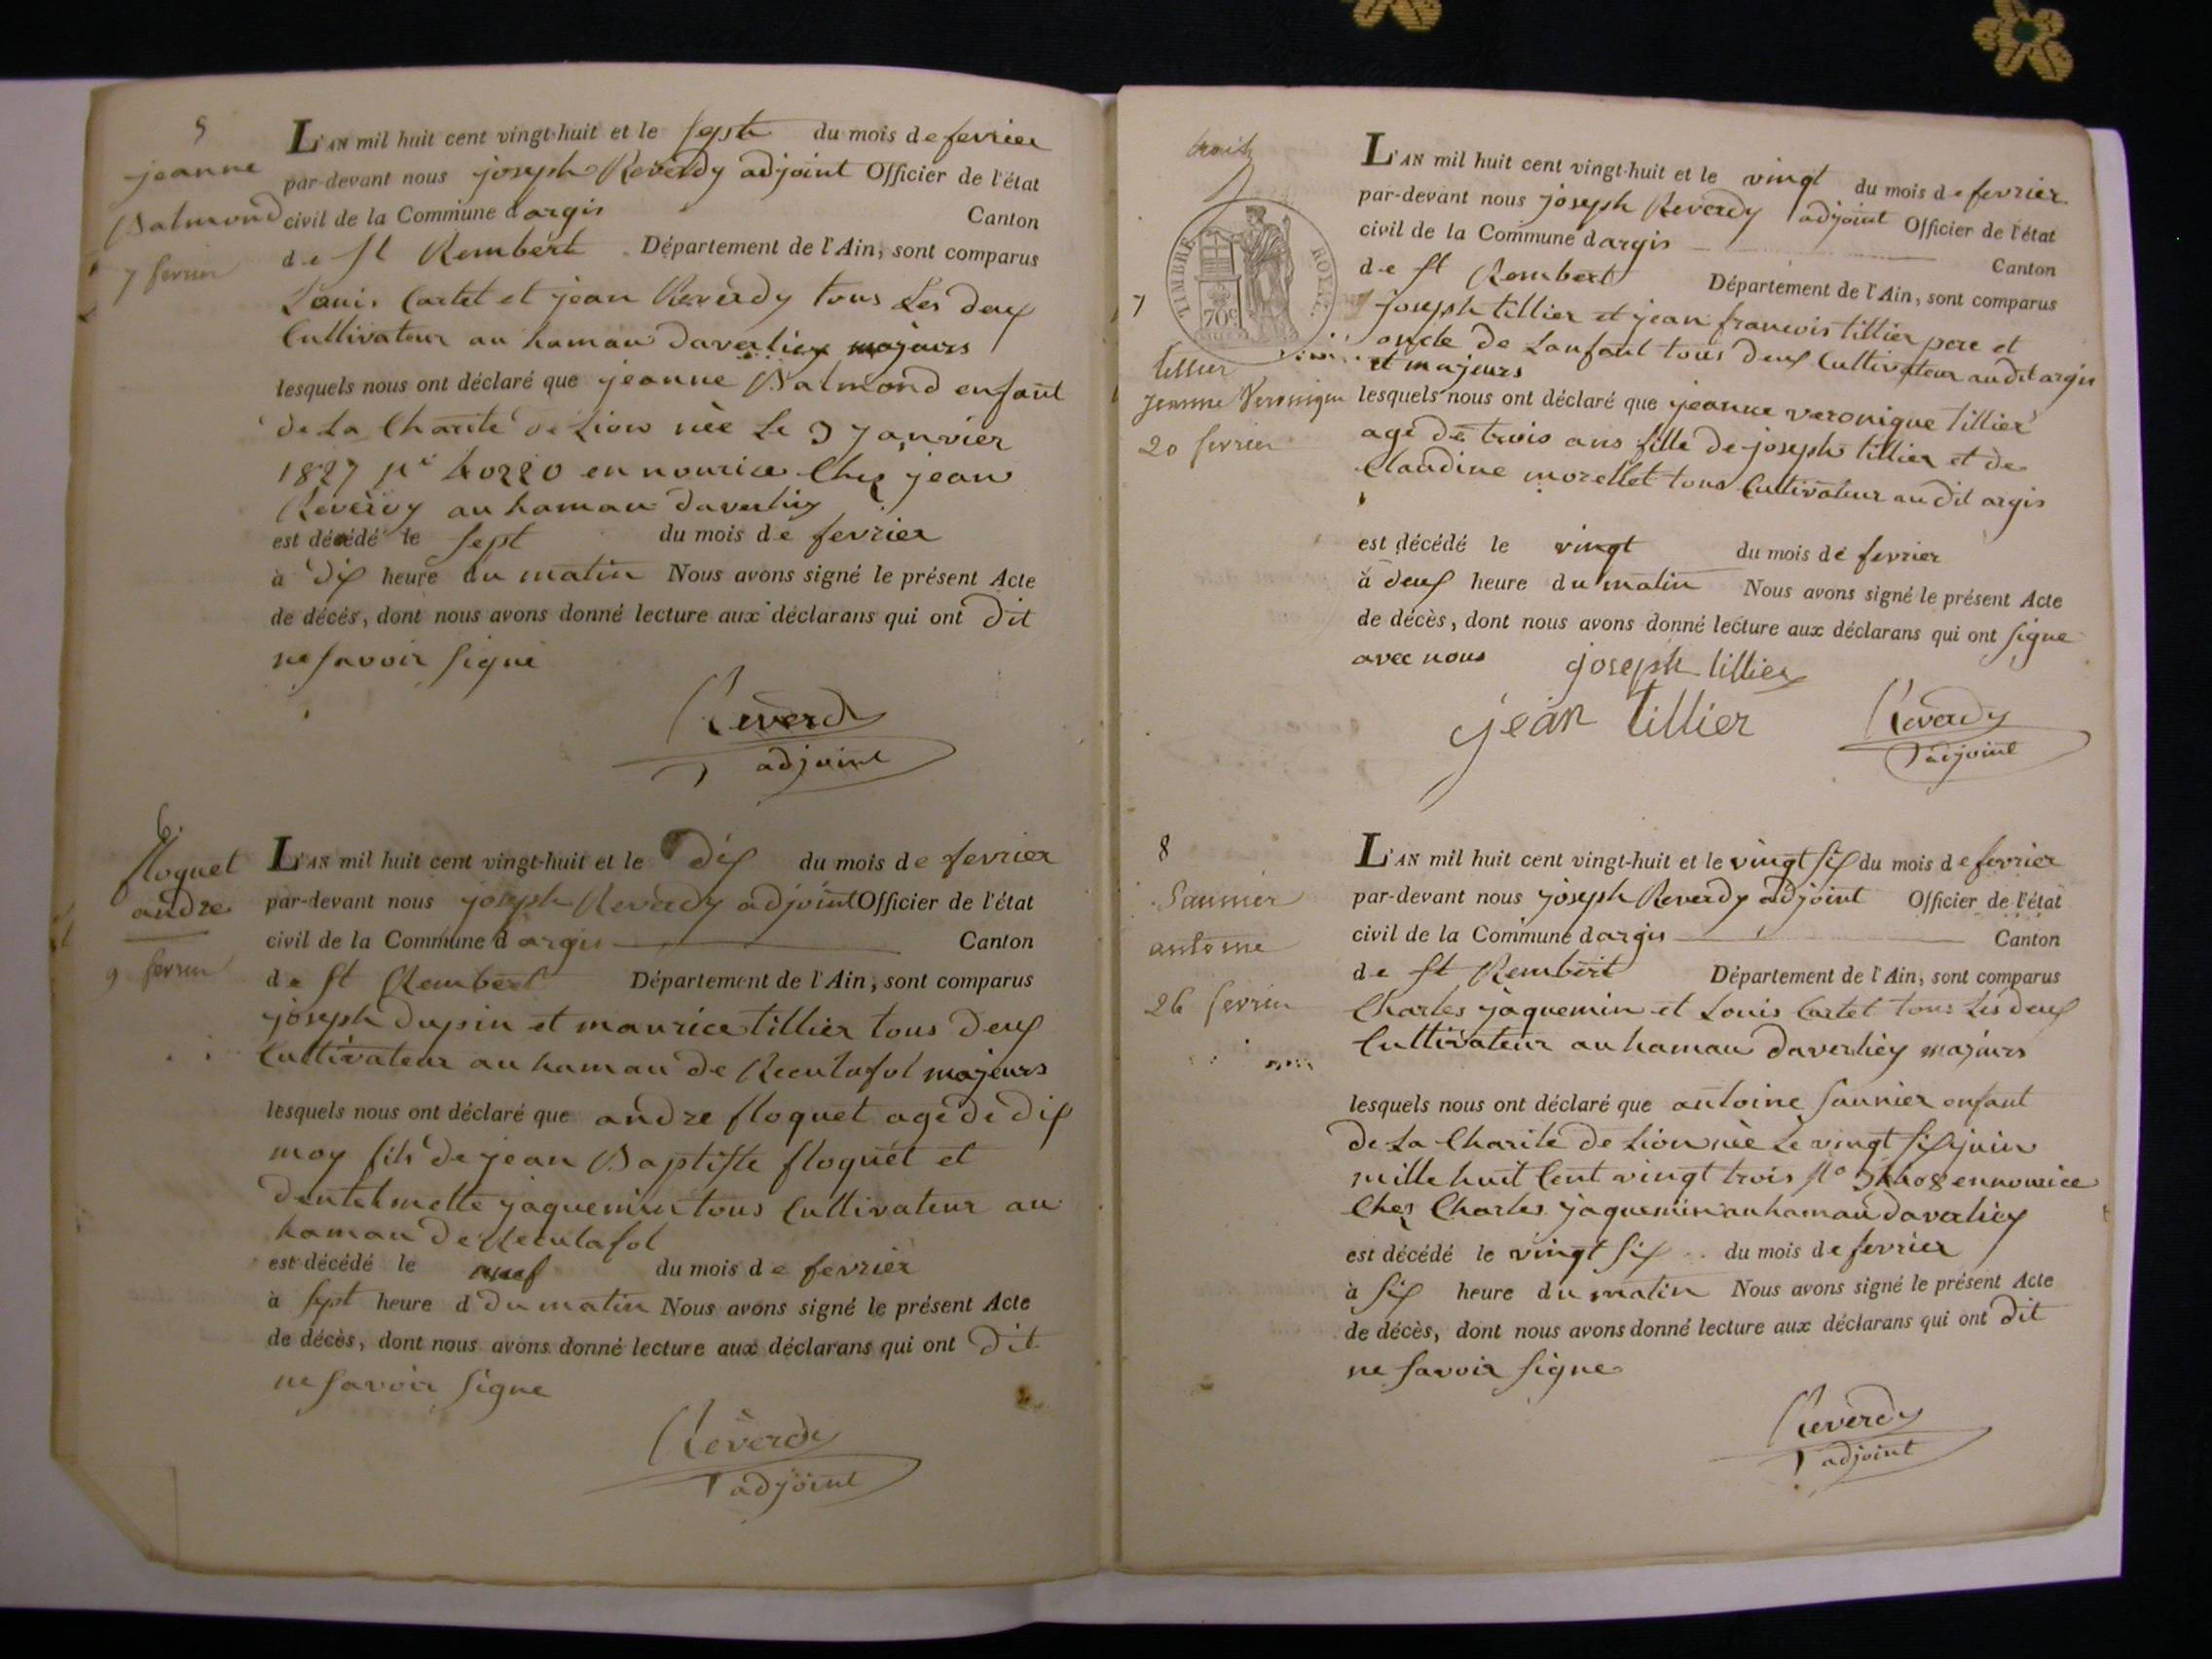 5
jeanne
Balmond
7 fevrier
L'AN mil huit cent vingt-huit et le sept du mois de fevrier
par-devant nous joseph Reverdy adjoint Officier de l'état
civil de la Commune dargis Canton
de St Rembert Département de l'Ain, sont comparus
Louis Cartet et jean Reverdy tous Les deux
Cultivateur au hamau daverliey majeurs
lesquels nous ont déclaré que jeanne Balmond enfant
de La Charité de Lion née Le 3 Janvier
1827 no 40220 en nourice Chez jean
Reverdy au hamau daverliey
est décédé le sept du mois de fevrier
à dix heure du matin Nous avons signé le présent Acte
de décès, dont nous avons donné lecture aux déclarans qui ont dit
ne savoir signé
Reverdy
adjoint
6
floquet
andre
9 fevrier
L'AN mil huit cent vingt-huit et le dix du mois de fevrier
par-devant nous joseph Reverdy adjoint Officier de l'état
civil de la Commune dargis Canton
de St Rembert Département de l'Ain, sont comparus
joseph dupin et maurice tillier tous deux
Cultivateur au hamau de Reculafol majeurs
lesquels nous ont déclaré que andre floquet age de dix
moy fils de jean Baptiste floquet et
jaquemin tous Cultivateur au
hamau de Reculafol
est décédé le neuf du mois de fevrier
à sept heure d du matin Nous avons signé le présent Acte
de décès, dont nous avons donné lecture aux déclarans qui ont dit
ne savoir signe
Reverdy
adjoint
trois
TIMBRE ROYAL
70c
7
tillier
Jeanne Veronique
20 fevrier
L'AN mil huit cent vingt-huit et le vingt du mois de fevrier
par-devant nous joseph Reverdy adjoint Officier de l'état
civil de la Commune dargis Canton
de St Rembert Département de l'Ain, sont comparus
Joseph tillier et jean francois tillier pere et
oncle de Lanfant tous deux Cultivateur audit argis
et majeurs
lesquels nous ont déclaré que jeanne veronique tillier
age de trois ans fille de joseph tillier et de
Claudine morellet tous Cultivateur au dit argis
est décédé le vingt du mois de fevrier
à deux heure du matin Nous avons signé le présent Acte
de décès, dont nous avons donné lecture aux déclarans qui ont signe
avec nous joseph tillier
jean tillier
Reverdy
adjoint
8
Saunier
antoine
26 fevrier
L'AN mil huit cent vingt-huit et le vingt six du mois de fevrier
par-devant nous joseph Reverdy adjoint Officier de l'état
civil de la Commune dargis Canton
de St Rembert Département de l'Ain, sont comparus
Charles jaquemin et Louis Cartet tous Les deux
Cultivateur au hamau daverliey majeurs
lesquels nous ont déclaré que antoine saunier enfant
de La Charite de Lion née Le vingt six juin
mille huit Cent vingt trois no en nourice
Chez Charles jaquemin au hamau daverliey
est décédé le vingt six du mois de fevrier
à six heure du matin Nous avons signé le présent Acte
de décès, dont nous avons donné lecture aux déclarans qui ont dit
ne savoir signe
Reverdy
adjoint